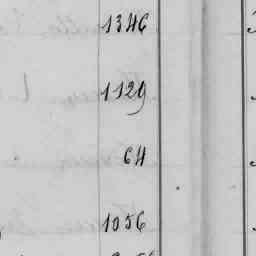 1346
1129
64
1056